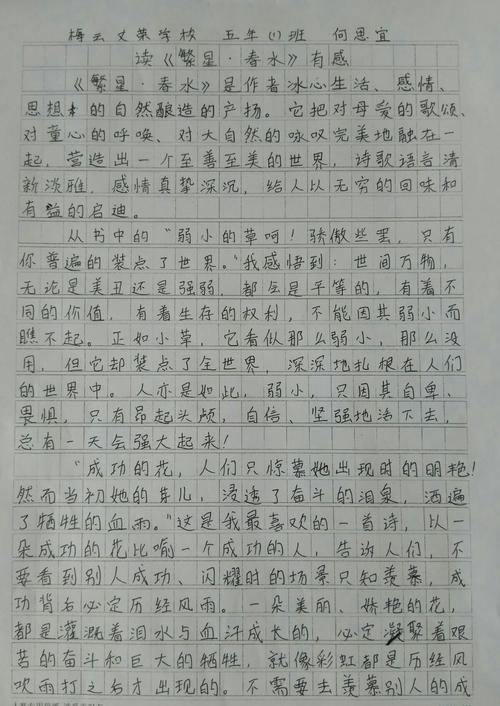 梅云文荣学校 五年(1)班 何思宜
读《繁星·春水》有感
《繁星·春水》是作者冰心生活、感情、
思想的自然酿造的产扬。它把对母爱的歌颂、
对童心的呼唤、对大自然的咏叹完美地融在一
起，营造出一个至善至美的世界，诗歌语言清
新淡雅，感情真挚深沉，给人以无穷的回味和
有益的启迪。
从书中的“弱小的草呵！骄傲些罢，只有
你普遍的装点了世界。”我感悟到：世间万物，
无论是美丑还是强弱，都是平等的，有着不
同的价值，有着生存的权利，不能因其弱小而
瞧不起。正如小草，它看似那么弱小，那么没
用，但它却装点了全世界，深深地扎根在人们
的世界中。人亦是如此，弱小，只因其自卑、
畏惧，只有昂起头颅，自信、坚强地活下去，
总有一天会强大起来！
“成功的花，人们只惊慕她出现时的明艳！
然而当初她的芽儿，浸透了奋斗的泪泉，洒遍
了牺牲的血雨。”这是我最喜欢的一首诗，以一
朵成功的花比喻一个成功的人，告诉人们，不
要看到别人成功、闪耀时的场景只知羡慕，成
功背后必定历经风雨。一朵美丽、娇艳的花，
都是灌溉着泪水与血汗成长的，必定凝聚着艰
苦的奋斗和巨大的牺牲，就像彩虹都是历经风
吹雨打之后才出现的。不需要去羡慕别人的成